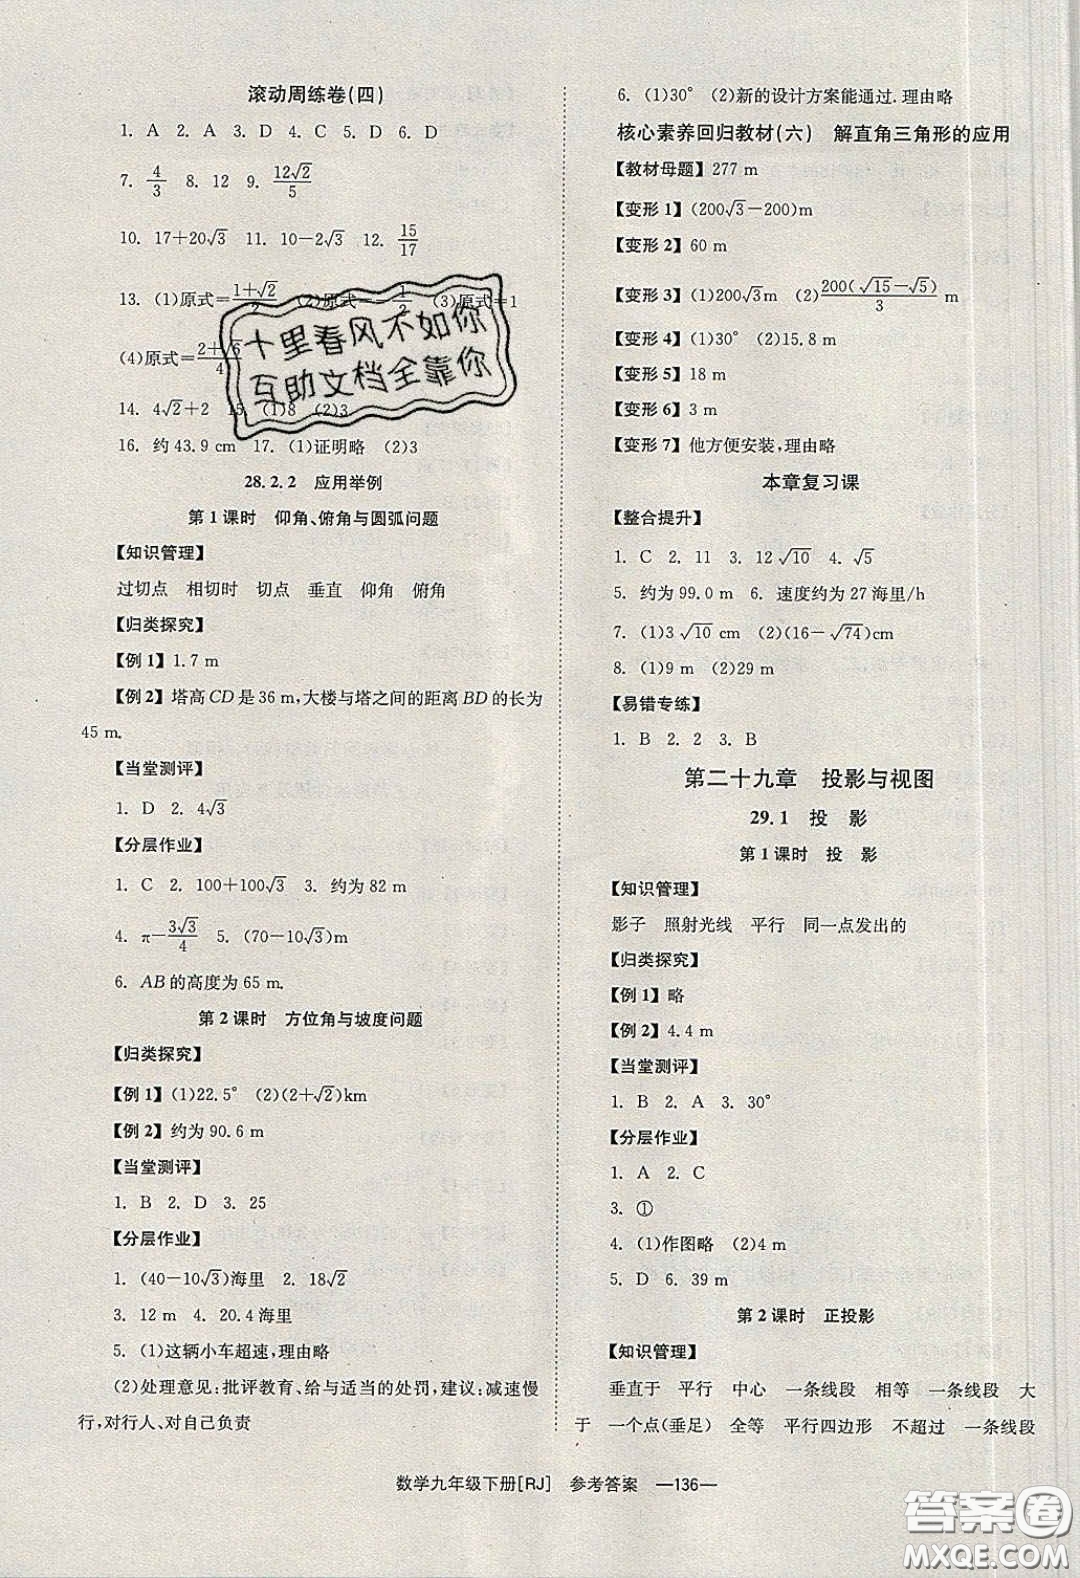 滚动周练卷(四)
1. A 2. A 3. D 4. C 5. D 6. D
7. 4/3 8. 12 9. 12√2/5
10. 17+20√3 11. 10-2√3 12. 15/17
13. (1)原式=(1+√2)/2 (2)原式=-1/2 (3)原式=1
(4)原式=
14. 4√2+2 15. (1)8 (2)3
16. 约 43.9 cm 17. (1)证明略 (2)3
28.2.2 应用举例
第 1 课时 仰角、俯角与圆弧问题
【知识管理】
过切点 相切时 切点 垂直 仰角 俯角
【归类探究】
【例 1】1.7 m
【例 2】塔高 CD 是 36 m,大楼与塔之间的距离 BD 的长为
45 m.
【当堂测评】
1. D 2. 4√3
【分层作业】
1. C 2. 100+100√3 3. 约为 82 m
4. π-3√3/4 5. (70-10√3)m
6. AB 的高度为 65 m.
第 2 课时 方位角与坡度问题
【归类探究】
【例 1】(1)22.5° (2)(2+√2)km
【例 2】约为 90.6 m
【当堂测评】
1. B 2. D 3. 25
【分层作业】
1. (40-10√3)海里 2. 18√2
3. 12 m 4. 20.4 海里
5. (1)这辆小车超速,理由略
(2)处理意见:批评教育、给与适当的处罚,建议:减速慢
行,对行人、对自己负责
6. (1)30° (2)新的设计方案能通过.理由略
核心素养回归教材(六) 解直角三角形的应用
【教材母题】277 m
【变形 1】(200√3-200)m
【变形 2】60 m
【变形 3】(1)200√3m (2)200(√15-√5)/3 m
【变形 4】(1)30° (2)15.8 m
【变形 5】18 m
【变形 6】3 m
【变形 7】他方便安装,理由略
本章复习课
【整合提升】
1. C 2. 11 3. 12√10 4. √5
5. 约为 99.0 m 6. 速度约为 27 海里/h
7. (1)3√10 cm (2)(16-√74)cm
8. (1)9 m (2)29 m
【易错专练】
1. B 2. 2 3. B
第二十九章 投影与视图
29.1 投 影
第 1 课时 投 影
【知识管理】
影子 照射光线 平行 同一点发出的
【归类探究】
【例 1】略
【例 2】4.4 m
【当堂测评】
1. B 2. A 3. 30°
【分层作业】
1. A 2. C
3. ①
4. (1)作图略 (2)4 m
5. D 6. 39 m
第 2 课时 正投影
【知识管理】
垂直于 平行 中心 一条线段 相等 一条线段 大
于 一个点(垂足) 全等 平行四边形 不超过 一条线段
数学九年级下册[RJ] 参考答案 —136—
十里春风不如你
互助文档全靠你
答案圈
MXQE.COM